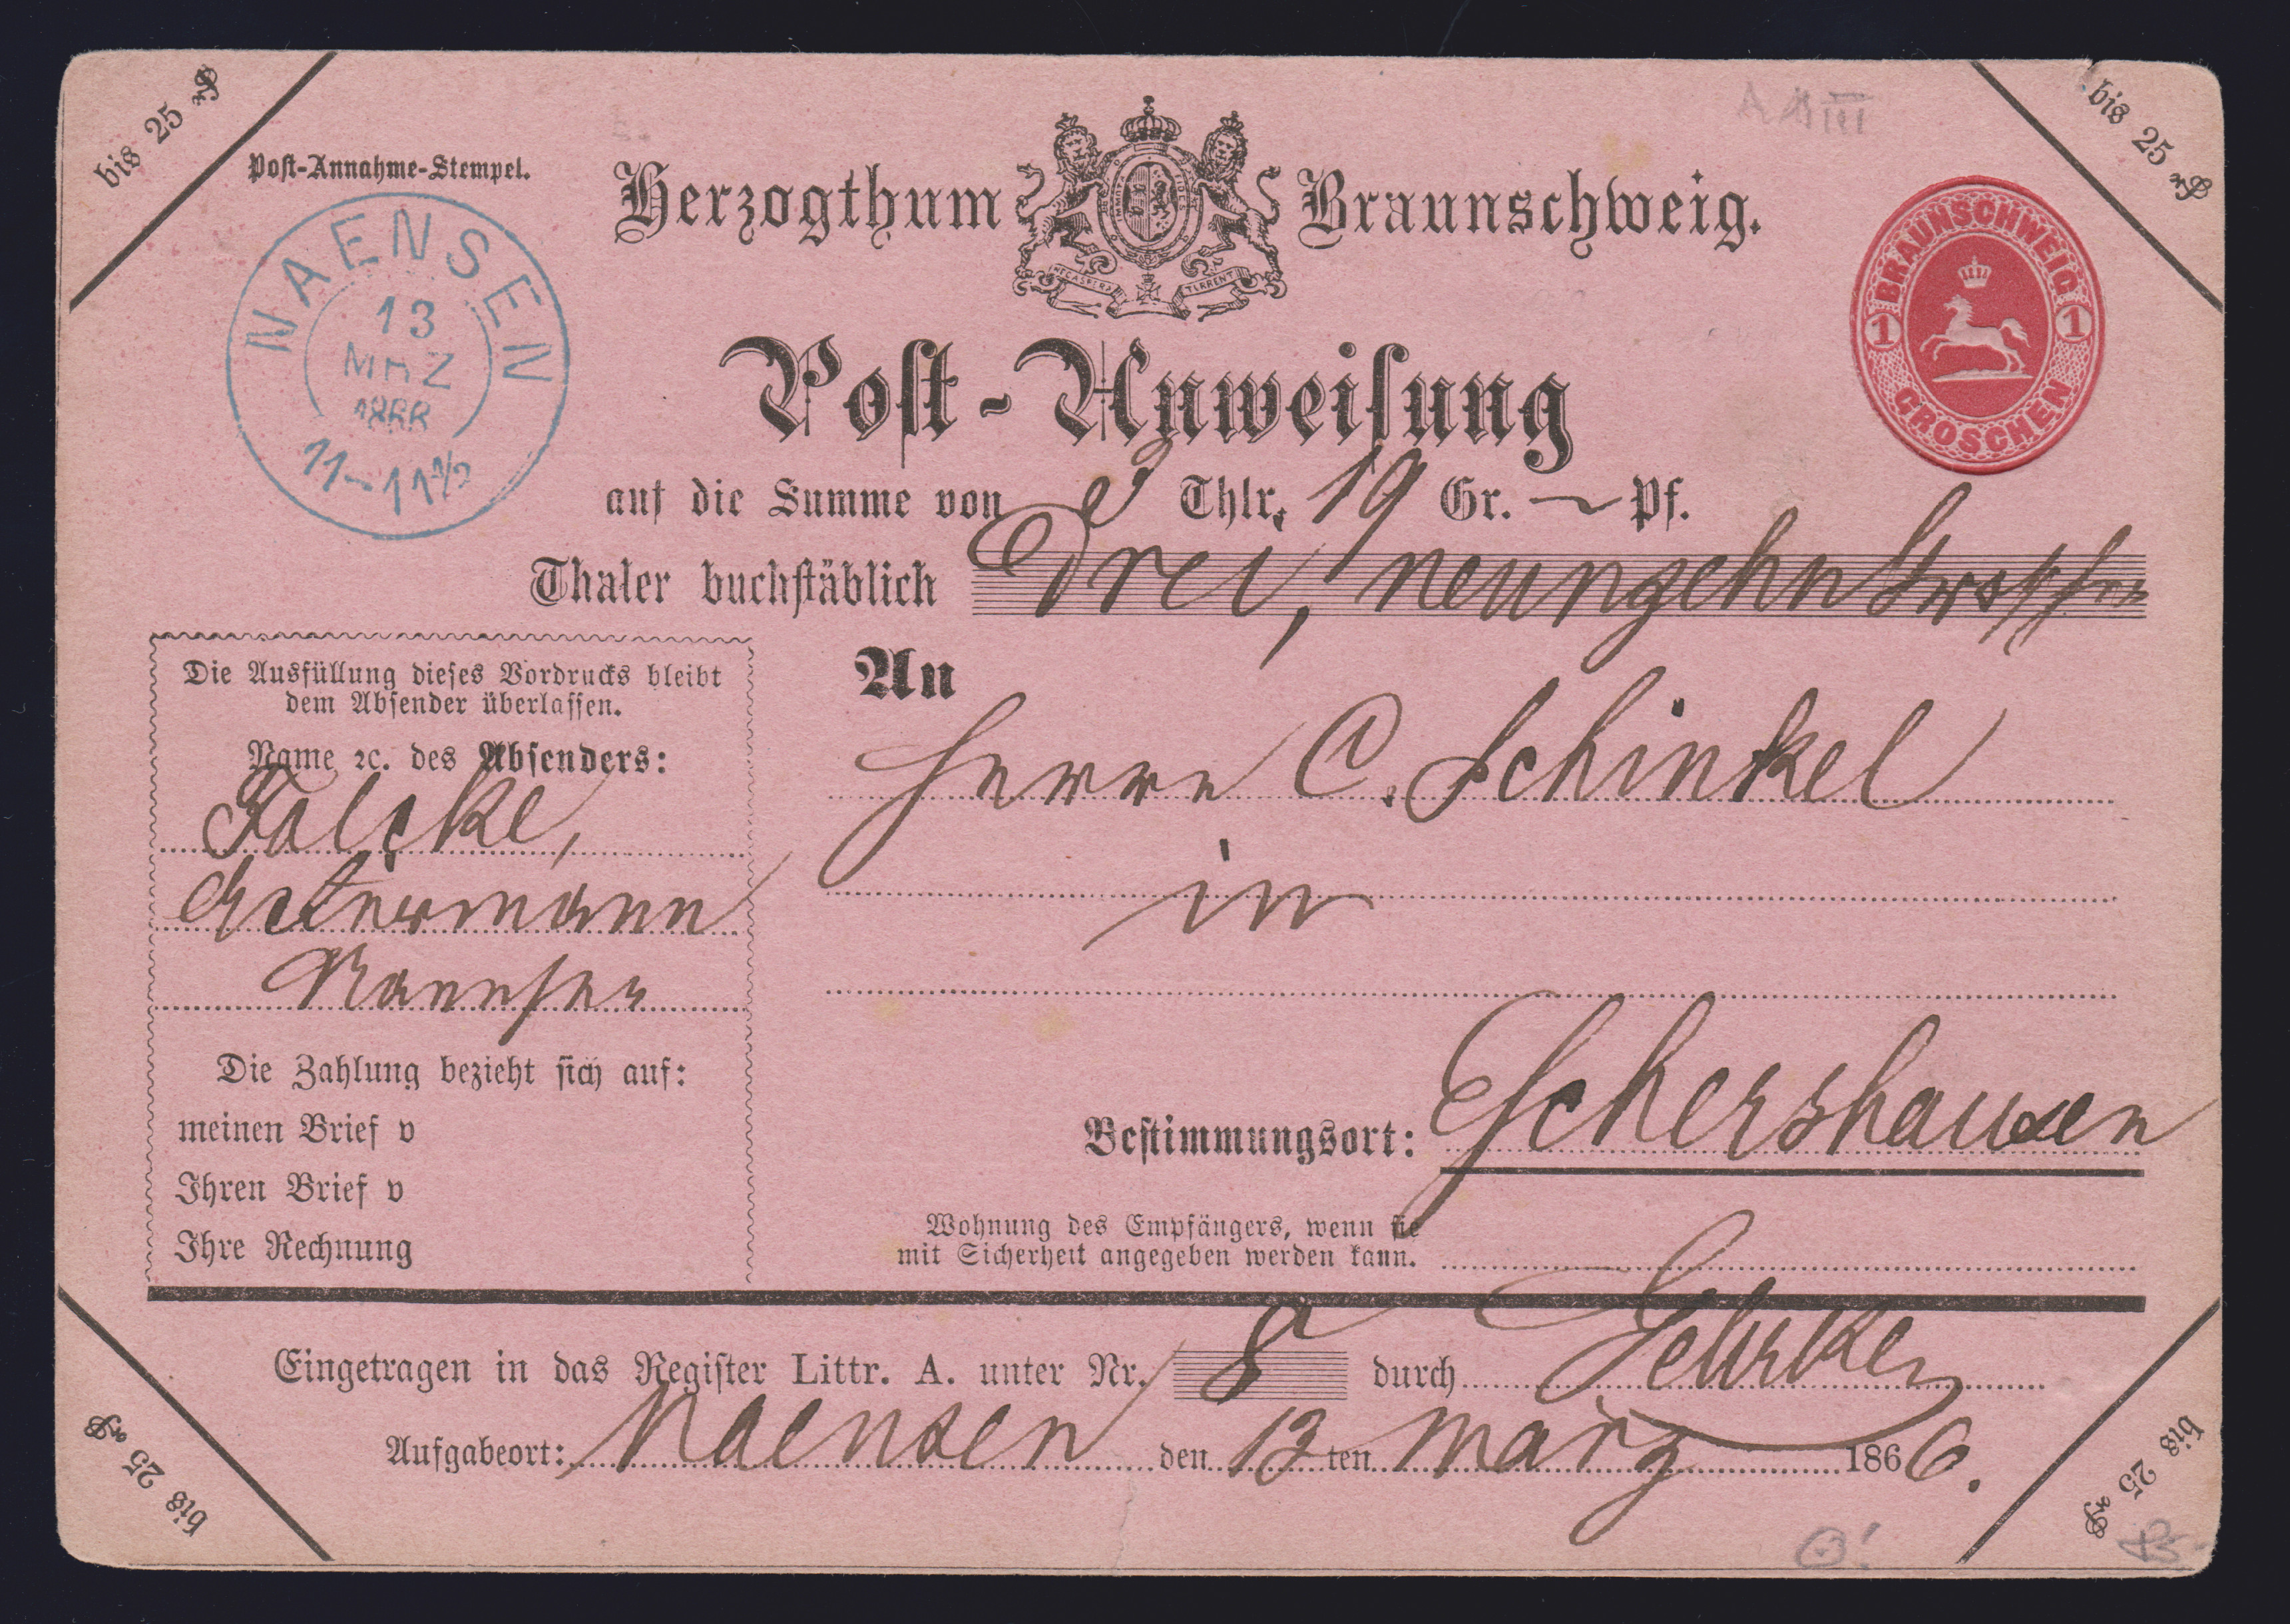 bis 25 ₰
bis 25 ₰
Post-Annahme-Stempel.
NAENSEN
13
MRZ
1866
11-11½
Herzogthum Braunschweig.
NEC ASPERA TERRENT
BRAUNSCHWEIG
1 1
GROSCHEN
Post-Anweisung
auf die Summe von 3 Thlr. 19 Gr. — Pf.
Thaler buchstäblich Drei, neunzehn Groschen
Die Ausfüllung dieses Vordrucks bleibt
dem Absender überlassen.
Name ꝛc. des Absenders:
Falcke,
Naensen
An
Herrn C. Schinkel
in
Bestimmungsort: Eschershausen
Die Zahlung bezieht sich auf:
meinen Brief v
Ihren Brief v
Ihre Rechnung
Wohnung des Empfängers, wenn sie
mit Sicherheit angegeben werden kann.
Eingetragen in das Register Littr. A. unter Nr. 8 durch Gehrke
Aufgabeort: Naensen den 13 ten März 1866.
bis 25 ₰
bis 25 ₰